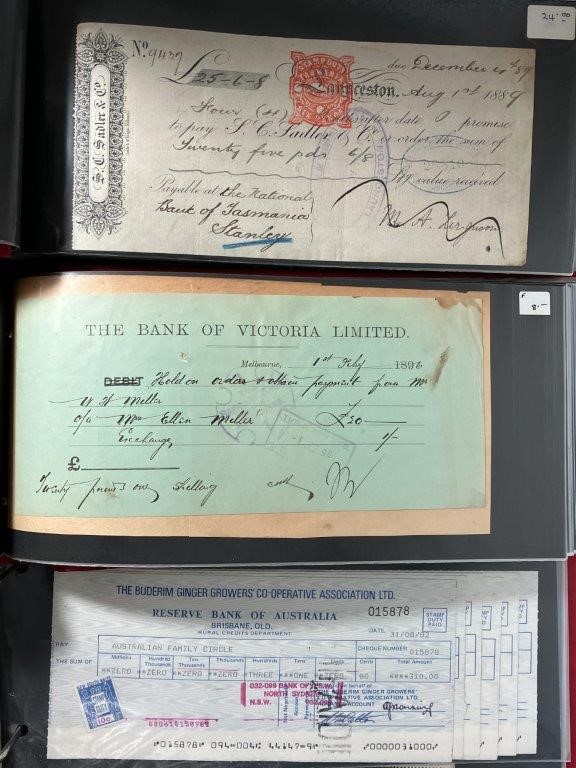 24.00
No. 9437
due December 4th 89
£25-6-8
STAMP DUTY
Launceston, Aug 1st 1889
S. C. Sadler & Co.
Four (4) after date I promise
to pay S. C. Sadler & Co or order the sum of
Twenty five pds 6/8
for value received
Payable at the National
Bank of Tasmania
Stanley
M. A.
F
8.-
THE BANK OF VICTORIA LIMITED.
Melbourne, 1st July 1896
DEBIT Hold on order & obtain payment from Mr
W H Meller
o/a Mrs Ellen Meller £20—
Exchange 1/-
£
Twenty pounds one shilling
THE BUDERIM GINGER GROWERS' CO-OPERATIVE ASSOCIATION LTD.
RESERVE BANK OF AUSTRALIA 015878
STAMP DUTY PAID
BRISBANE, QLD.
RURAL CREDITS DEPARTMENT
DATE 31/08/82
PAY AUSTRALIAN FAMILY CIRCLE
CHEQUE NUMBER 015878
THE SUM OF
Millions Hundred Thousands Ten Thousands Thousands Hundreds Tens Cents Total Amount
**ZERO **ZERO **ZERO **ZERO *THREE ***ONE 00 ****310.00
032-099 BANK OF N.S.W.
NORTH SYDNEY
N.S.W. 032-099
For and on behalf of
BUDERIM GINGER GROWERS'
ASSOCIATION LTD.
ACCOUNT
10c
015878 094-004 44147-9 0000031000